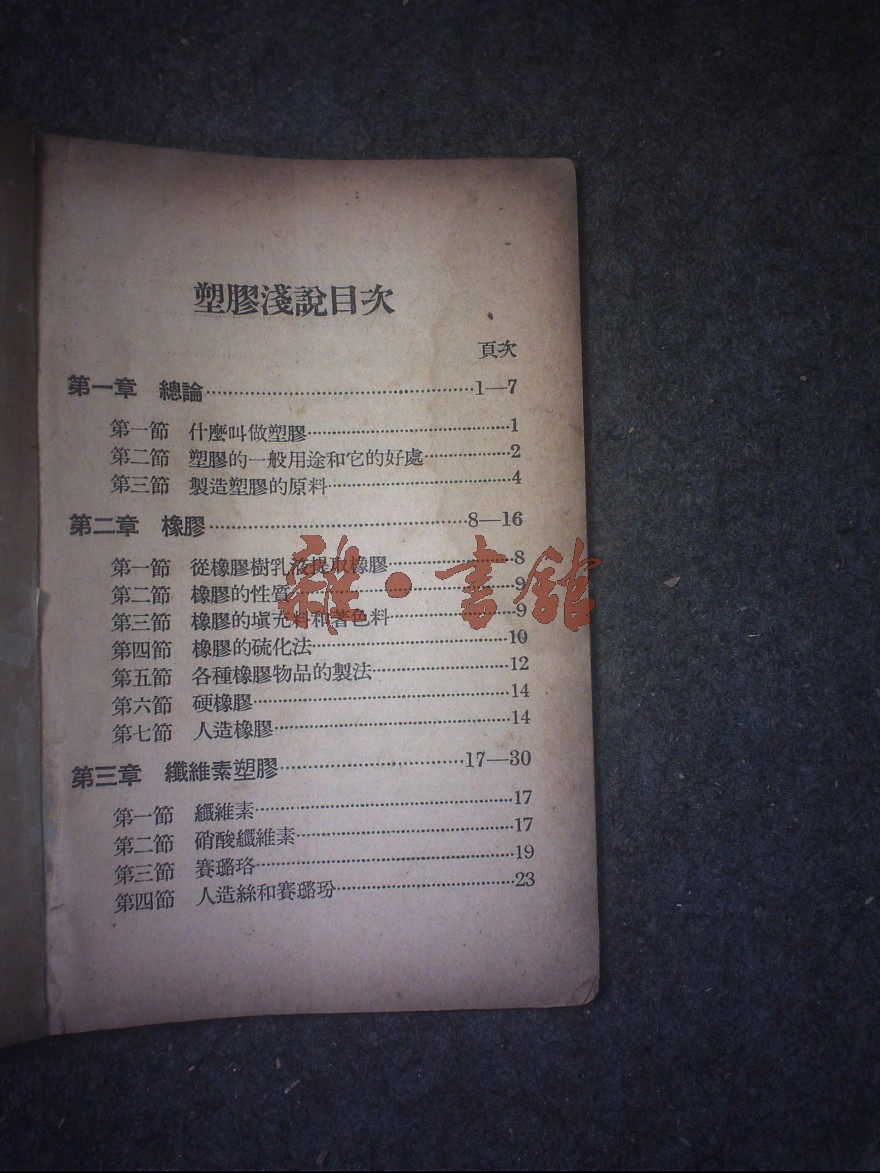 塑膠淺說目次
頁次
第一章 總論……1—7
第一節 什麼叫做塑膠……1
第二節 塑膠的一般用途和它的好處……2
第三節 製造塑膠的原料……4
第二章 橡膠……8—16
第一節 從橡膠樹乳液提取橡膠……8
第二節 橡膠的性質……9
第三節 橡膠的填充料和著色料……9
第四節 橡膠的硫化法……10
第五節 各種橡膠物品的製法……12
第六節 硬橡膠……14
第七節 人造橡膠……14
第三章 纖維素塑膠……17—30
第一節 纖維素……17
第二節 硝酸纖維素……17
第三節 賽璐珞……19
第四節 人造絲和賽璐玢……23
雜·書館